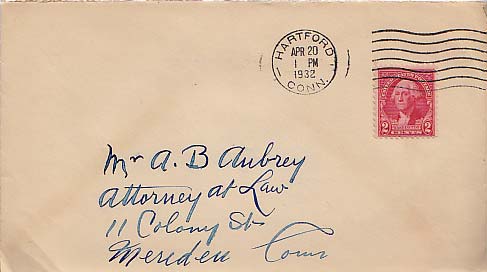 HARTFORD
APR 20
1 PM
1932
CONN.
2 2
Mr A. B Aubrey
Attorney at Law
11 Colony St
Meriden Conn